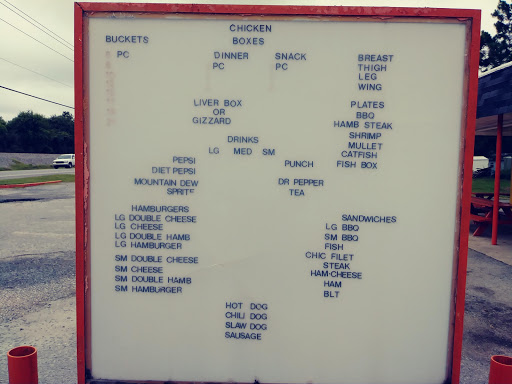 CHICKEN
BUCKETS BOXES
PC DINNER SNACK BREAST
PC PC THIGH
LEG
WING
LIVER BOX PLATES
OR BBQ
GIZZARD HAMB STEAK
SHRIMP
DRINKS MULLET
LG MED SM CATFISH
PEPSI PUNCH FISH BOX
DIET PEPSI
MOUNTAIN DEW DR PEPPER
SPRITE TEA
HAMBURGERS
LG DOUBLE CHEESE SANDWICHES
LG CHEESE LG BBQ
LG DOUBLE HAMB SM BBQ
LG HAMBURGER FISH
CHIC FILET
SM DOUBLE CHEESE STEAK
SM CHEESE HAM-CHEESE
SM DOUBLE HAMB HAM
SM HAMBURGER BLT
HOT DOG
CHILI DOG
SLAW DOG
SAUSAGE